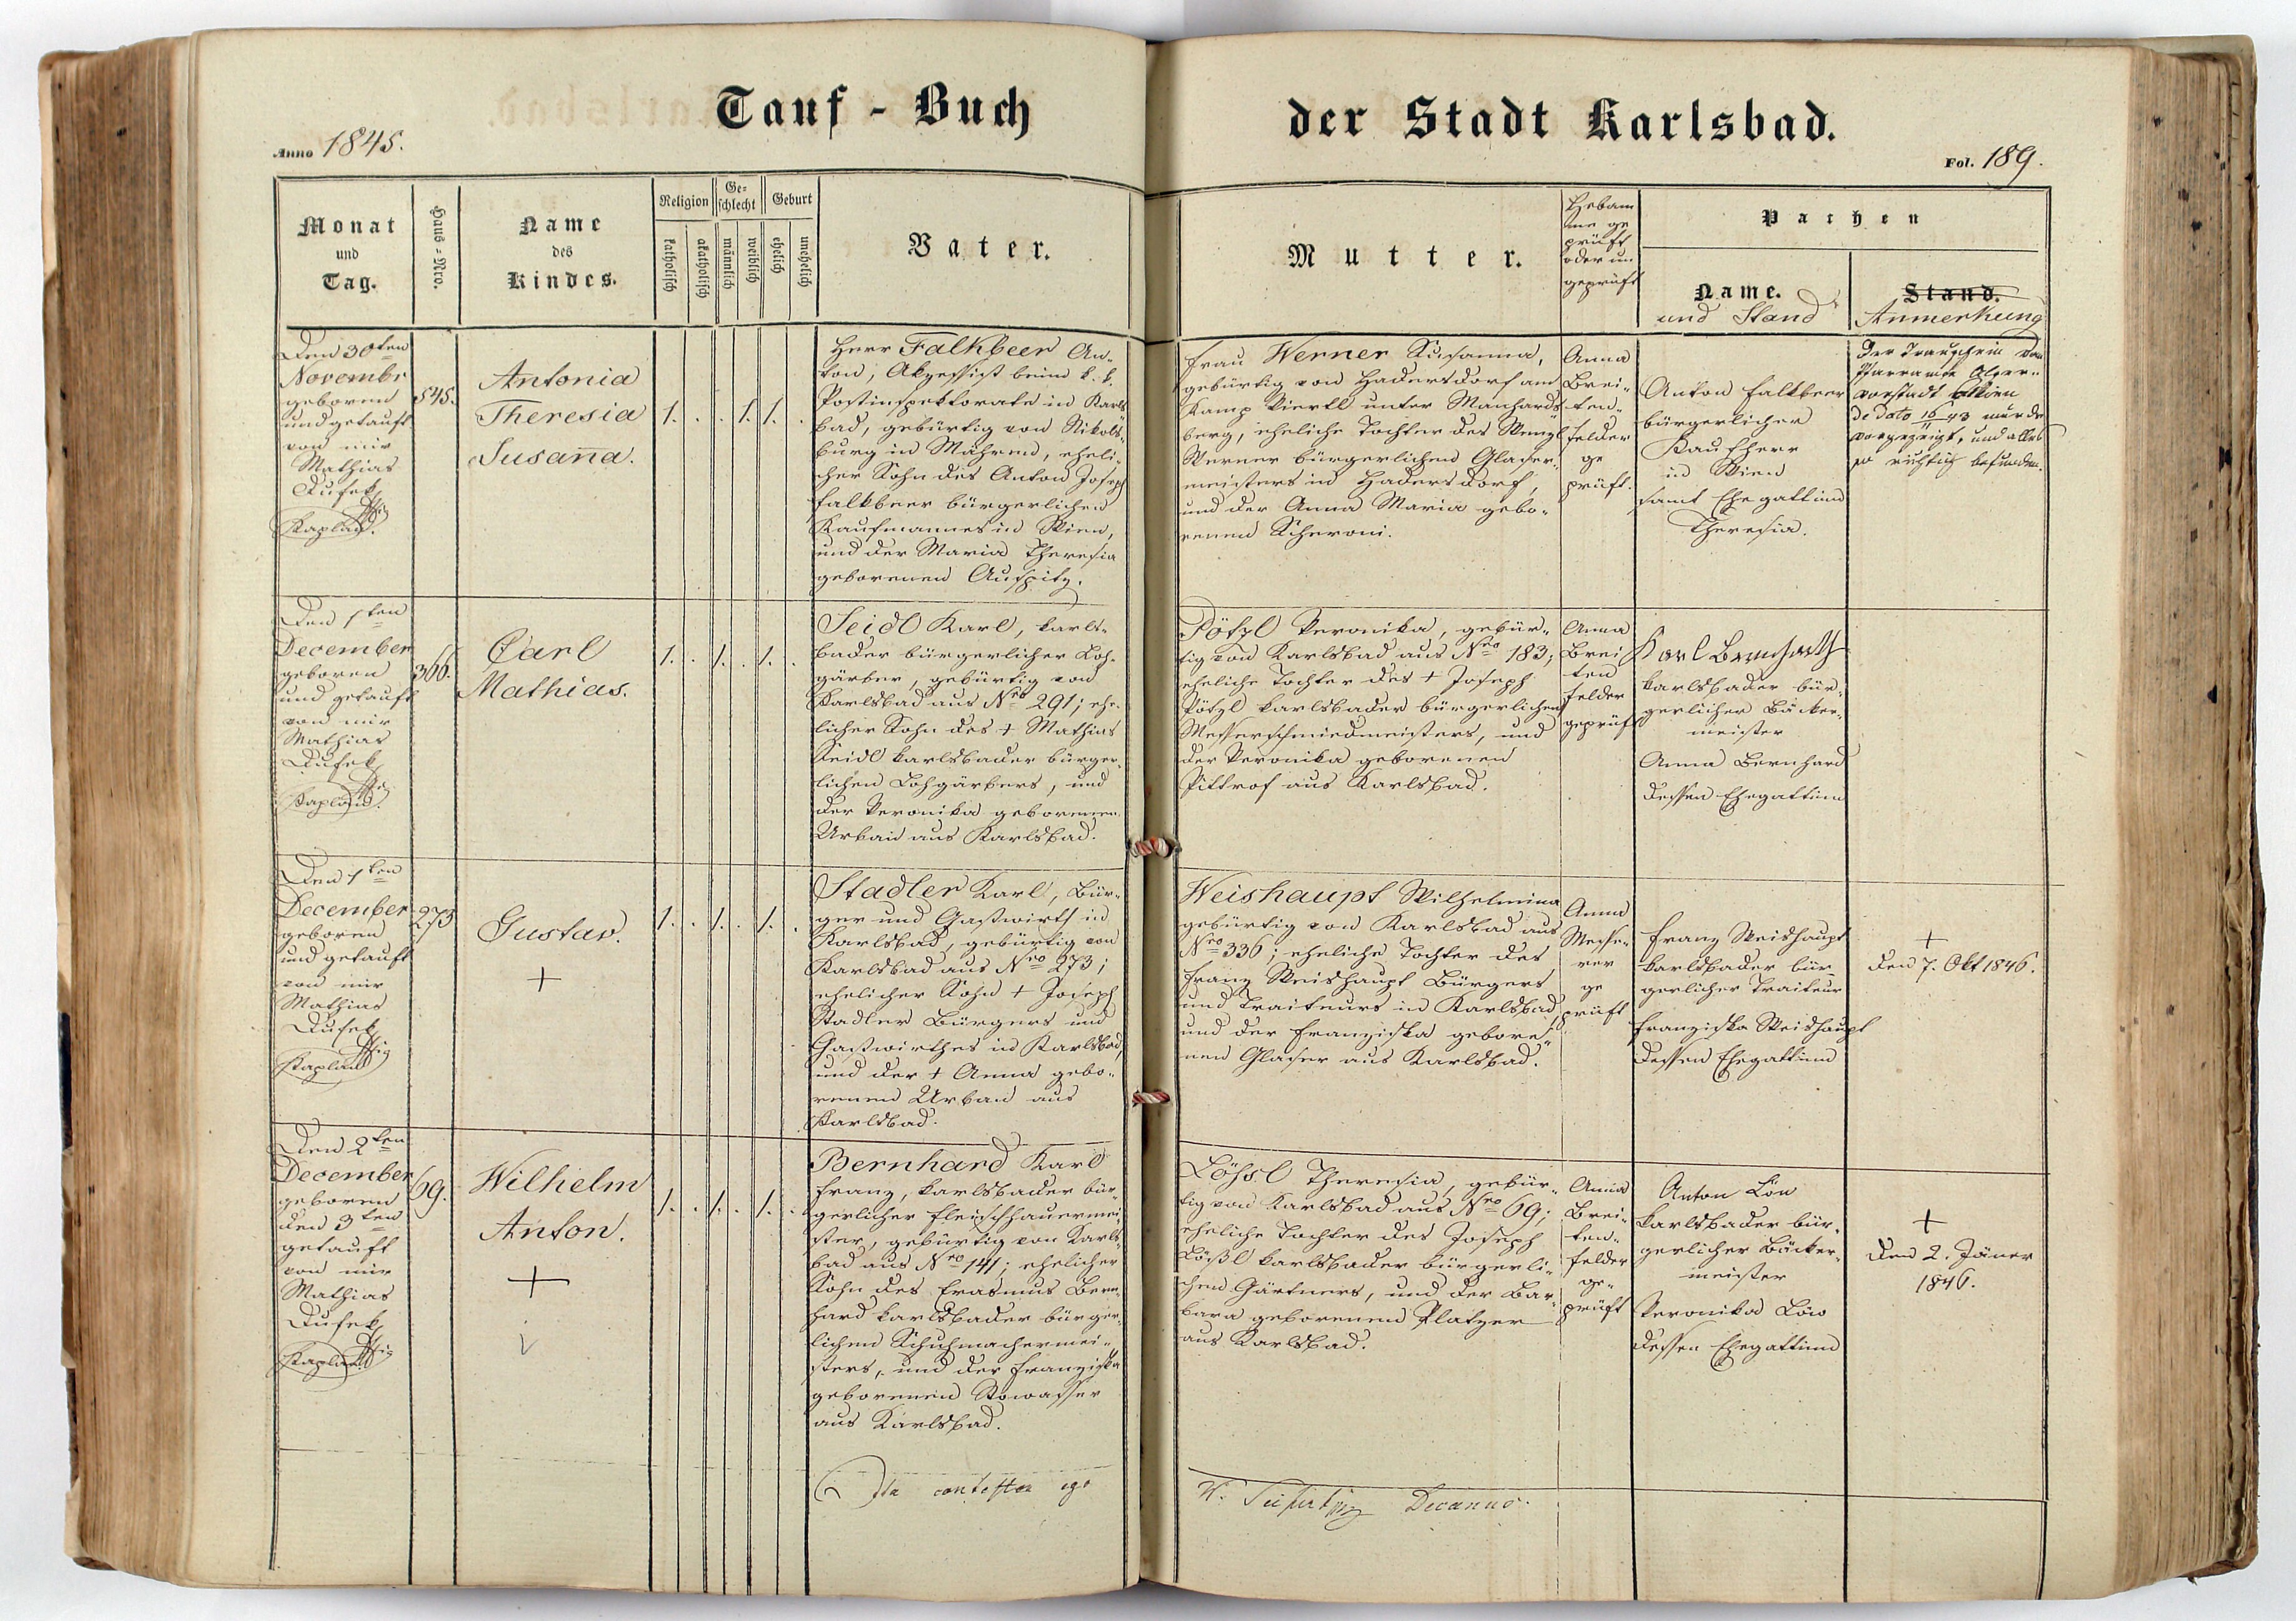 Tauf - Buch
der Stadt Karlsbad.
Anno 1845.
Fol. 189.
Monat
und
Tag.
Haus-Nro.
Name
des
Kindes.
Religion
katholisch
akatholisch
Ge-
schlecht
männlich
weiblich
Geburt
ehelich
unehelich
Vater.
Mutter.
Hebam
me ge
prüft
oder un
geprüft
Pathen
Name.
und Stand
Stand.
Anmerkung
Den 30ten
Novembr
geboren
und getauft
von mir
Mathias
Dusek
Kaplan.
545.
Antonia
Theresia
Susana.
1. . . 1. 1. .
Herr Falkbeer An-
ton, Akzessist beim k. k.
Postinspektorate in Karls-
bad, gebürtig von Nikols-
burg in Mähren, eheli-
cher Sohn des Anton Joseph
Falkbeer bürgerlichen
Kaufmannes in Wien,
und der Maria Theresia
geborenen Auspitz.
Frau Werner Susanna,
gebürtig von Hadersdorf am
Kamp Viertl unter Manhards-
berg, eheliche Tochter des Wenzl
Werner bürgerlichen Glaser-
meisters in Hadersdorf,
und der Anna Maria gebo-
renen Scheroni.
Anna
Brei-
ten-
felder
ge
prüft.
Anton Falkbeer
bürgerlicher
Kaufherr
in Wien
samt Ehegattinn
Theresia.
Der Trauschein von
Pfarramte Alser-
vorstadt Wien
de dato 16/11 43 wurde
vorgezeigt, und alles
so richtig befunden.
Den 1ten
December
geboren
und getauft
von mir
Mathias
Dusek
Kaplan.
366.
Carl
Mathias.
1. . 1. . 1. .
Seidl Karl, karls-
bader bürgerlicher Loh-
gärber, gebürtig von
Karlsbad aus Nro 291; ehe-
licher Sohn des + Mathias
Seidl karlsbader bürger-
lichen Lohgärbers, und
der Veronika geborenen
Urban aus Karlsbad.
Pötzl Veronika, gebür-
tig von Karlsbad aus Nro 183;
eheliche Tochter des + Joseph
Pötzl karlsbader bürgerlichen
Messerschmiedmeisters, und
der Veronika geborenen
Pittrof aus Karlsbad.
Anna
Brei
ten
felder
geprüft
Karl Bernhart
karlsbader bür-
gerlicher Bäcker-
meister
Anna Bernhard
dessen Ehegattinn
Den 1ten
December
geboren
und getauft
von mir
Mathias
Dusek
Kaplan
273
Gustav.
+
1. . 1. . 1. .
Stadler Karl, Bür-
ger und Gastwirth in
Karlsbad, gebürtig von
Karlsbad aus Nro 273;
ehelicher Sohn + Joseph
Stadler Bürgers und
Gastwirthes in Karlsbad,
und der + Anna gebo-
renen Urban aus
Karlsbad.
Weishaupt Wilhelmina
gebürtig von Karlsbad aus
Nro 336; eheliche Tochter des
Franz Weishaupt Bürgers
und Traiteurs in Karlsbad,
und der Franziska gebore-
nen Glaser aus Karlsbad.
Anna
Messe-
rer
ge
prüft
Franz Weishaupt
karlsbader bür-
gerlicher Traiteur
Franziska Weishaupt
dessen Ehegattinn
+
den 7. Okt 1846.
Den 2ten
December
geboren
den 3ten
getauft
von mir
Mathias
Dusek
Kaplan
69.
Wilhelm
Anton.
+
1. . 1. . 1. .
Bernhard Karl
Franz, karlsbader bür-
gerlicher Fleischhauermei-
ster, gebürtig von Karls-
bad aus Nro 141; ehelicher
Sohn des Erasmus Bern-
hard karlsbader bürger-
lichen Schuhmachermei-
sters, und der Franziska
geborenen Stowasser
aus Karlsbad.
Lößl Theresia, gebür-
tig von Karlsbad aus Nro 69;
eheliche Tochter des Joseph
Lößl karlsbader bürgerli-
chen Gärtners, und der Bar-
bara geborenen Platzer
aus Karlsbad.
Anna
Brei-
ten-
felder
ge-
prüft
Anton Löw
karlsbader bür-
gerlicher Bäcker-
meister
Veronika Löw
dessen Ehegattinn
+
den 2. Jäner
1846.
Ita contestor ego
Decanus.